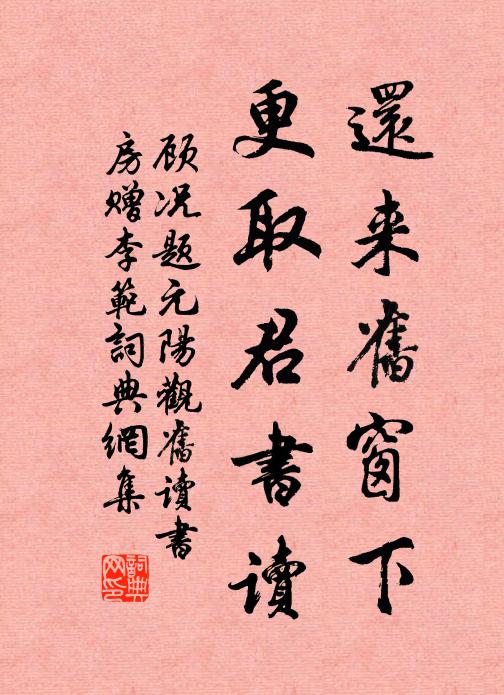 還来舊窗下
更取君書讀
顾况题元陽觀舊读書
房赠李範詞典網集
詞典网印